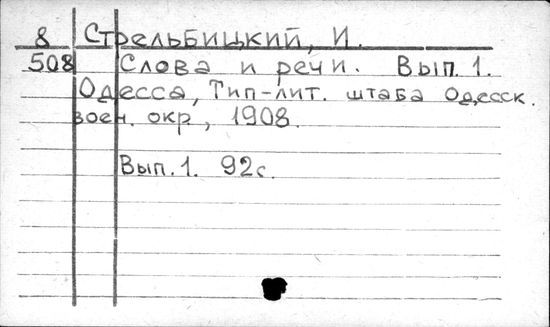 8 Стрельбицкий, И.
508 Слова и речи. Вып. 1.
Одесса, Тип-лит. штаба Одесск.
воен. окр, 1908.
Вып. 1. 92с.